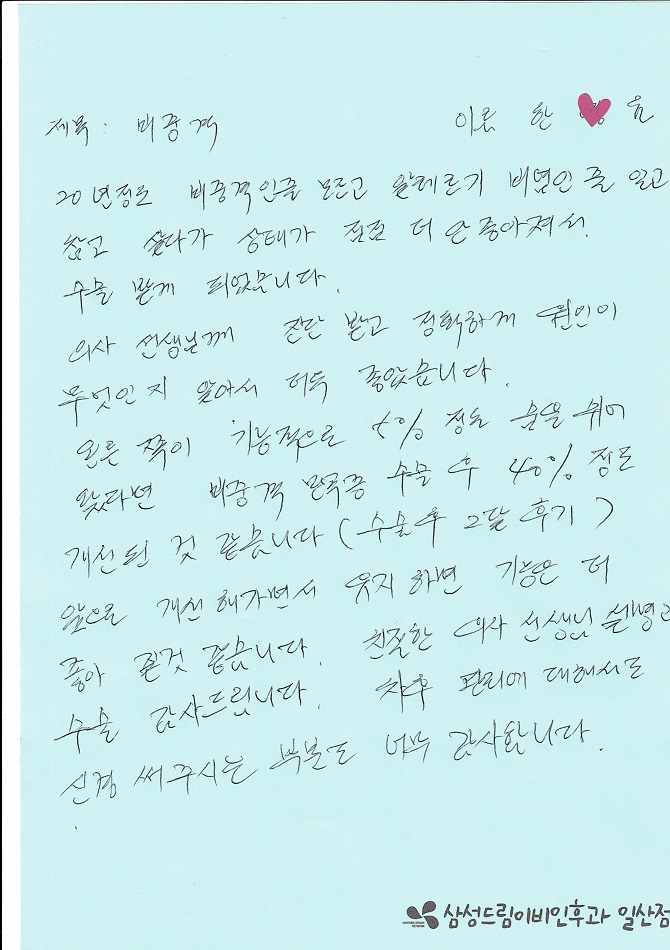 제목 : 비중격 이름 한 흠
20년정도 비중격인줄 모르고 알레르기 비염인 줄 알고
참고 살다가 상태가 점점 더 안 좋아져서.
수술 받게 되었습니다.
의사 선생님께 진단 받고 정확하게 원인이
무엇인지 알아서 더욱 좋았습니다.
오른 쪽이 기능적으로 5% 정도 숨을 쉬어
왔다면 비중격 만곡증 수술 후 40% 정도
개선된 것 같습니다 (수술후 2달 후기)
앞으로 개선 해가면서 유지 하면 기능은 더
좋아 질것 같습니다. 친절한 의사 선생님 설명과
수술 감사드립니다. 차후 관리에 대해서도
신경 써주시는 부분도 너무 감사합니다.
삼성드림이비인후과 일산점